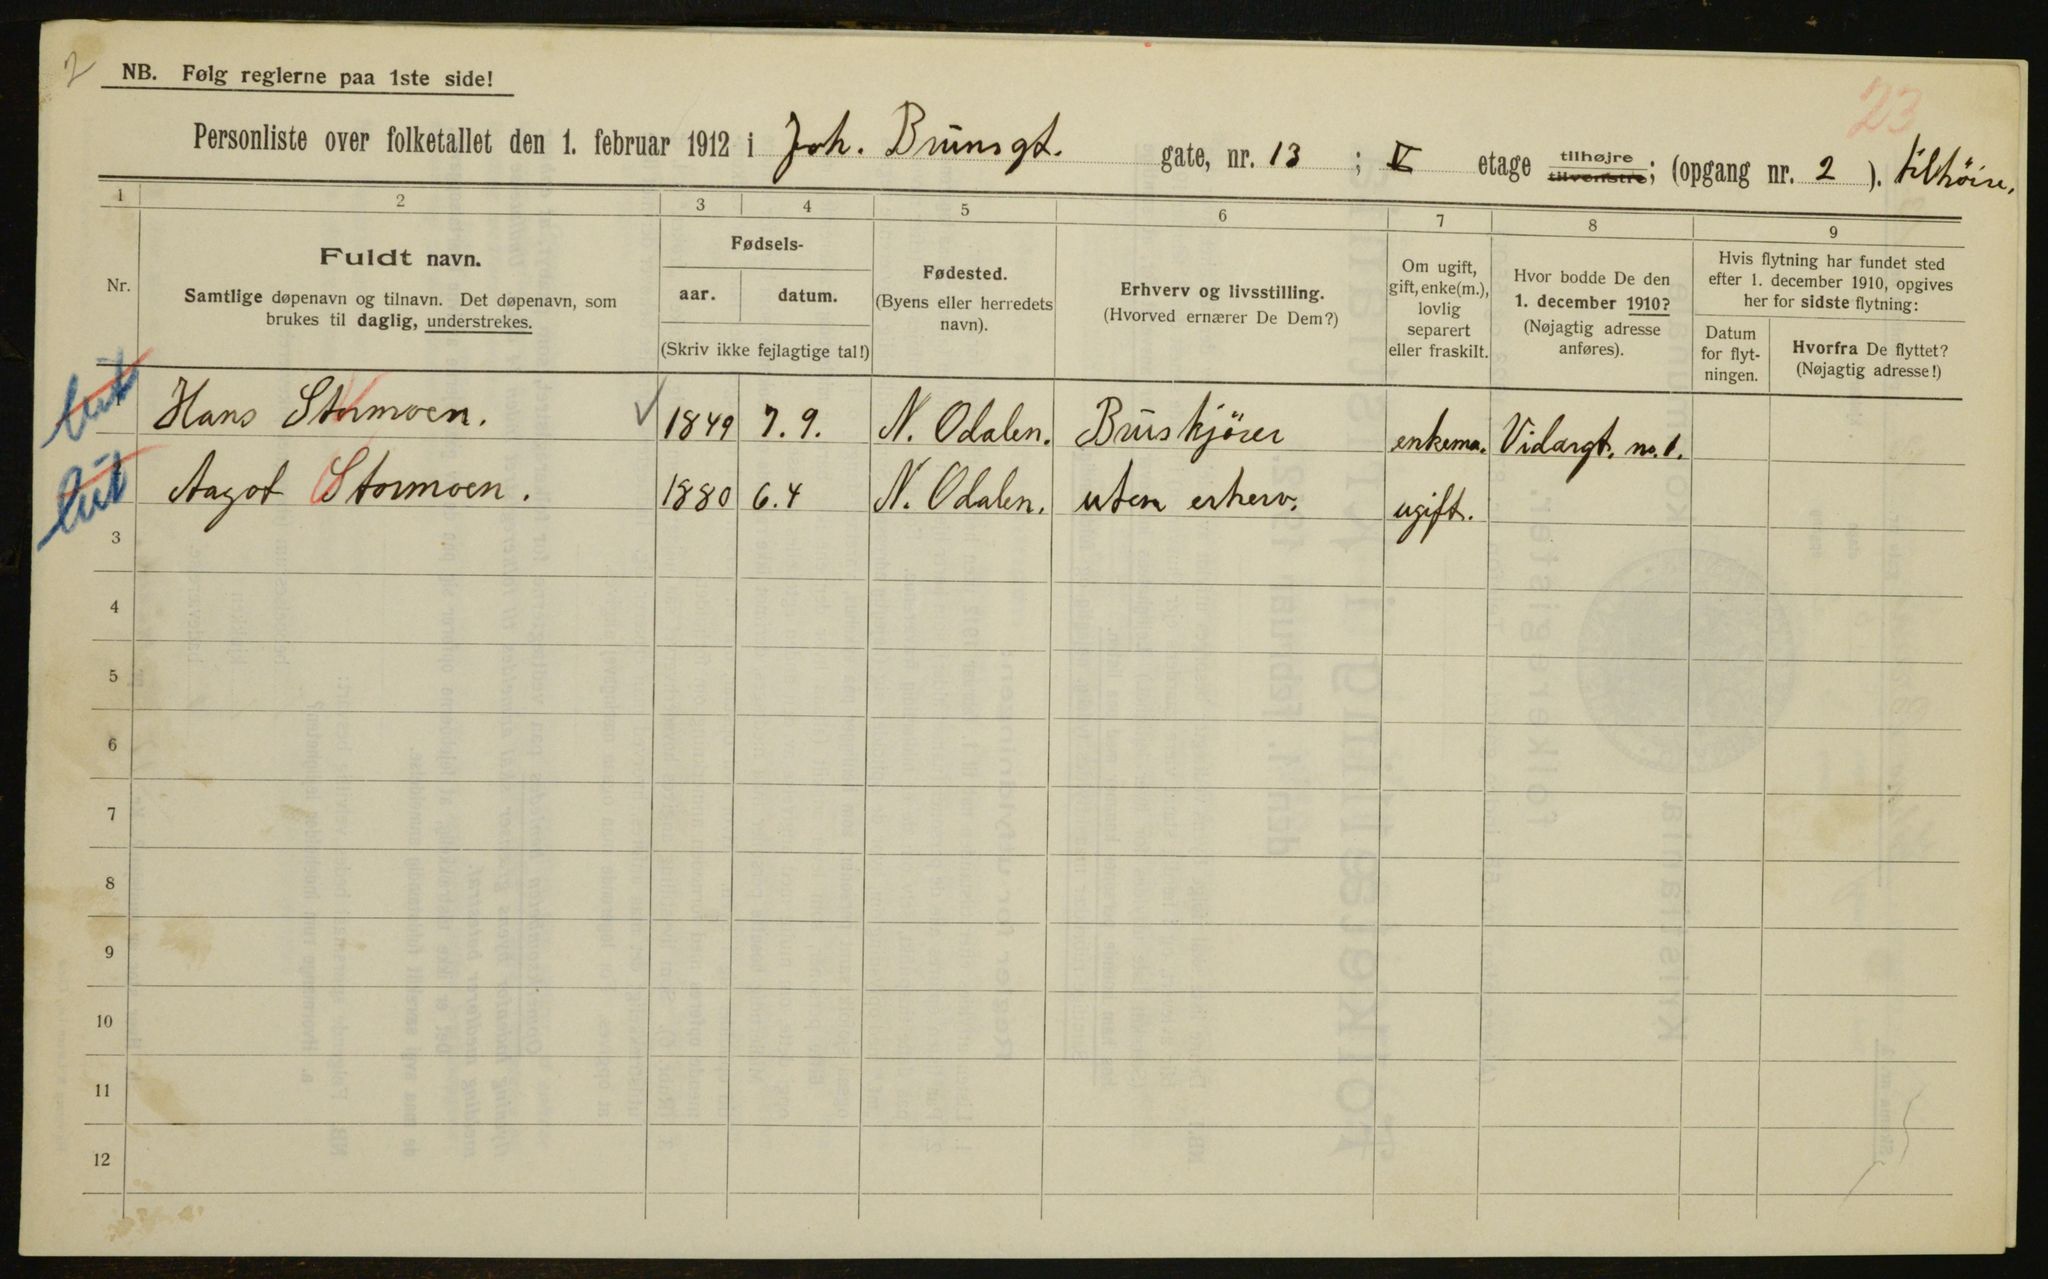 2
NB. Følg reglerne paa 1ste side!
23
Personliste over folketallet den 1. februar 1912 i Joh. Brunsgt. gate, nr. 13 ; V etage tilhøjre tilvenstre; (opgang nr. 2 ). tilhöire.
1 2 3 4 5 6 7 8 9
Nr.
Fuldt navn.
Samtlige døpenavn og tilnavn. Det døpenavn, som
brukes til daglig, understrekes.
Fødsels-
aar. datum.
(Skriv ikke fejlagtige tal!)
Fødested.
(Byens eller herredets
navn).
Erhverv og livsstilling.
(Hvorved ernærer De Dem?)
Om ugift,
gift, enke(m.),
lovlig
separert
eller fraskilt.
Hvor bodde De den
1. december 1910?
(Nøjagtig adresse
anføres).
Hvis flytning har fundet sted
efter 1. december 1910, opgives
her for sidste flytning:
Datum
for flyt-
ningen.
Hvorfra De flyttet?
(Nøjagtig adresse!)
1 Hans Stormoen. 1849 7. 9. N. Odalen. Bruskjörer enkema. Vidargt. no. 1.
Aagot Stormoen. 1880 6.4 N. Odalen. uten erherv. ugift.
3
4
5
6
7
8
9
10
11
12